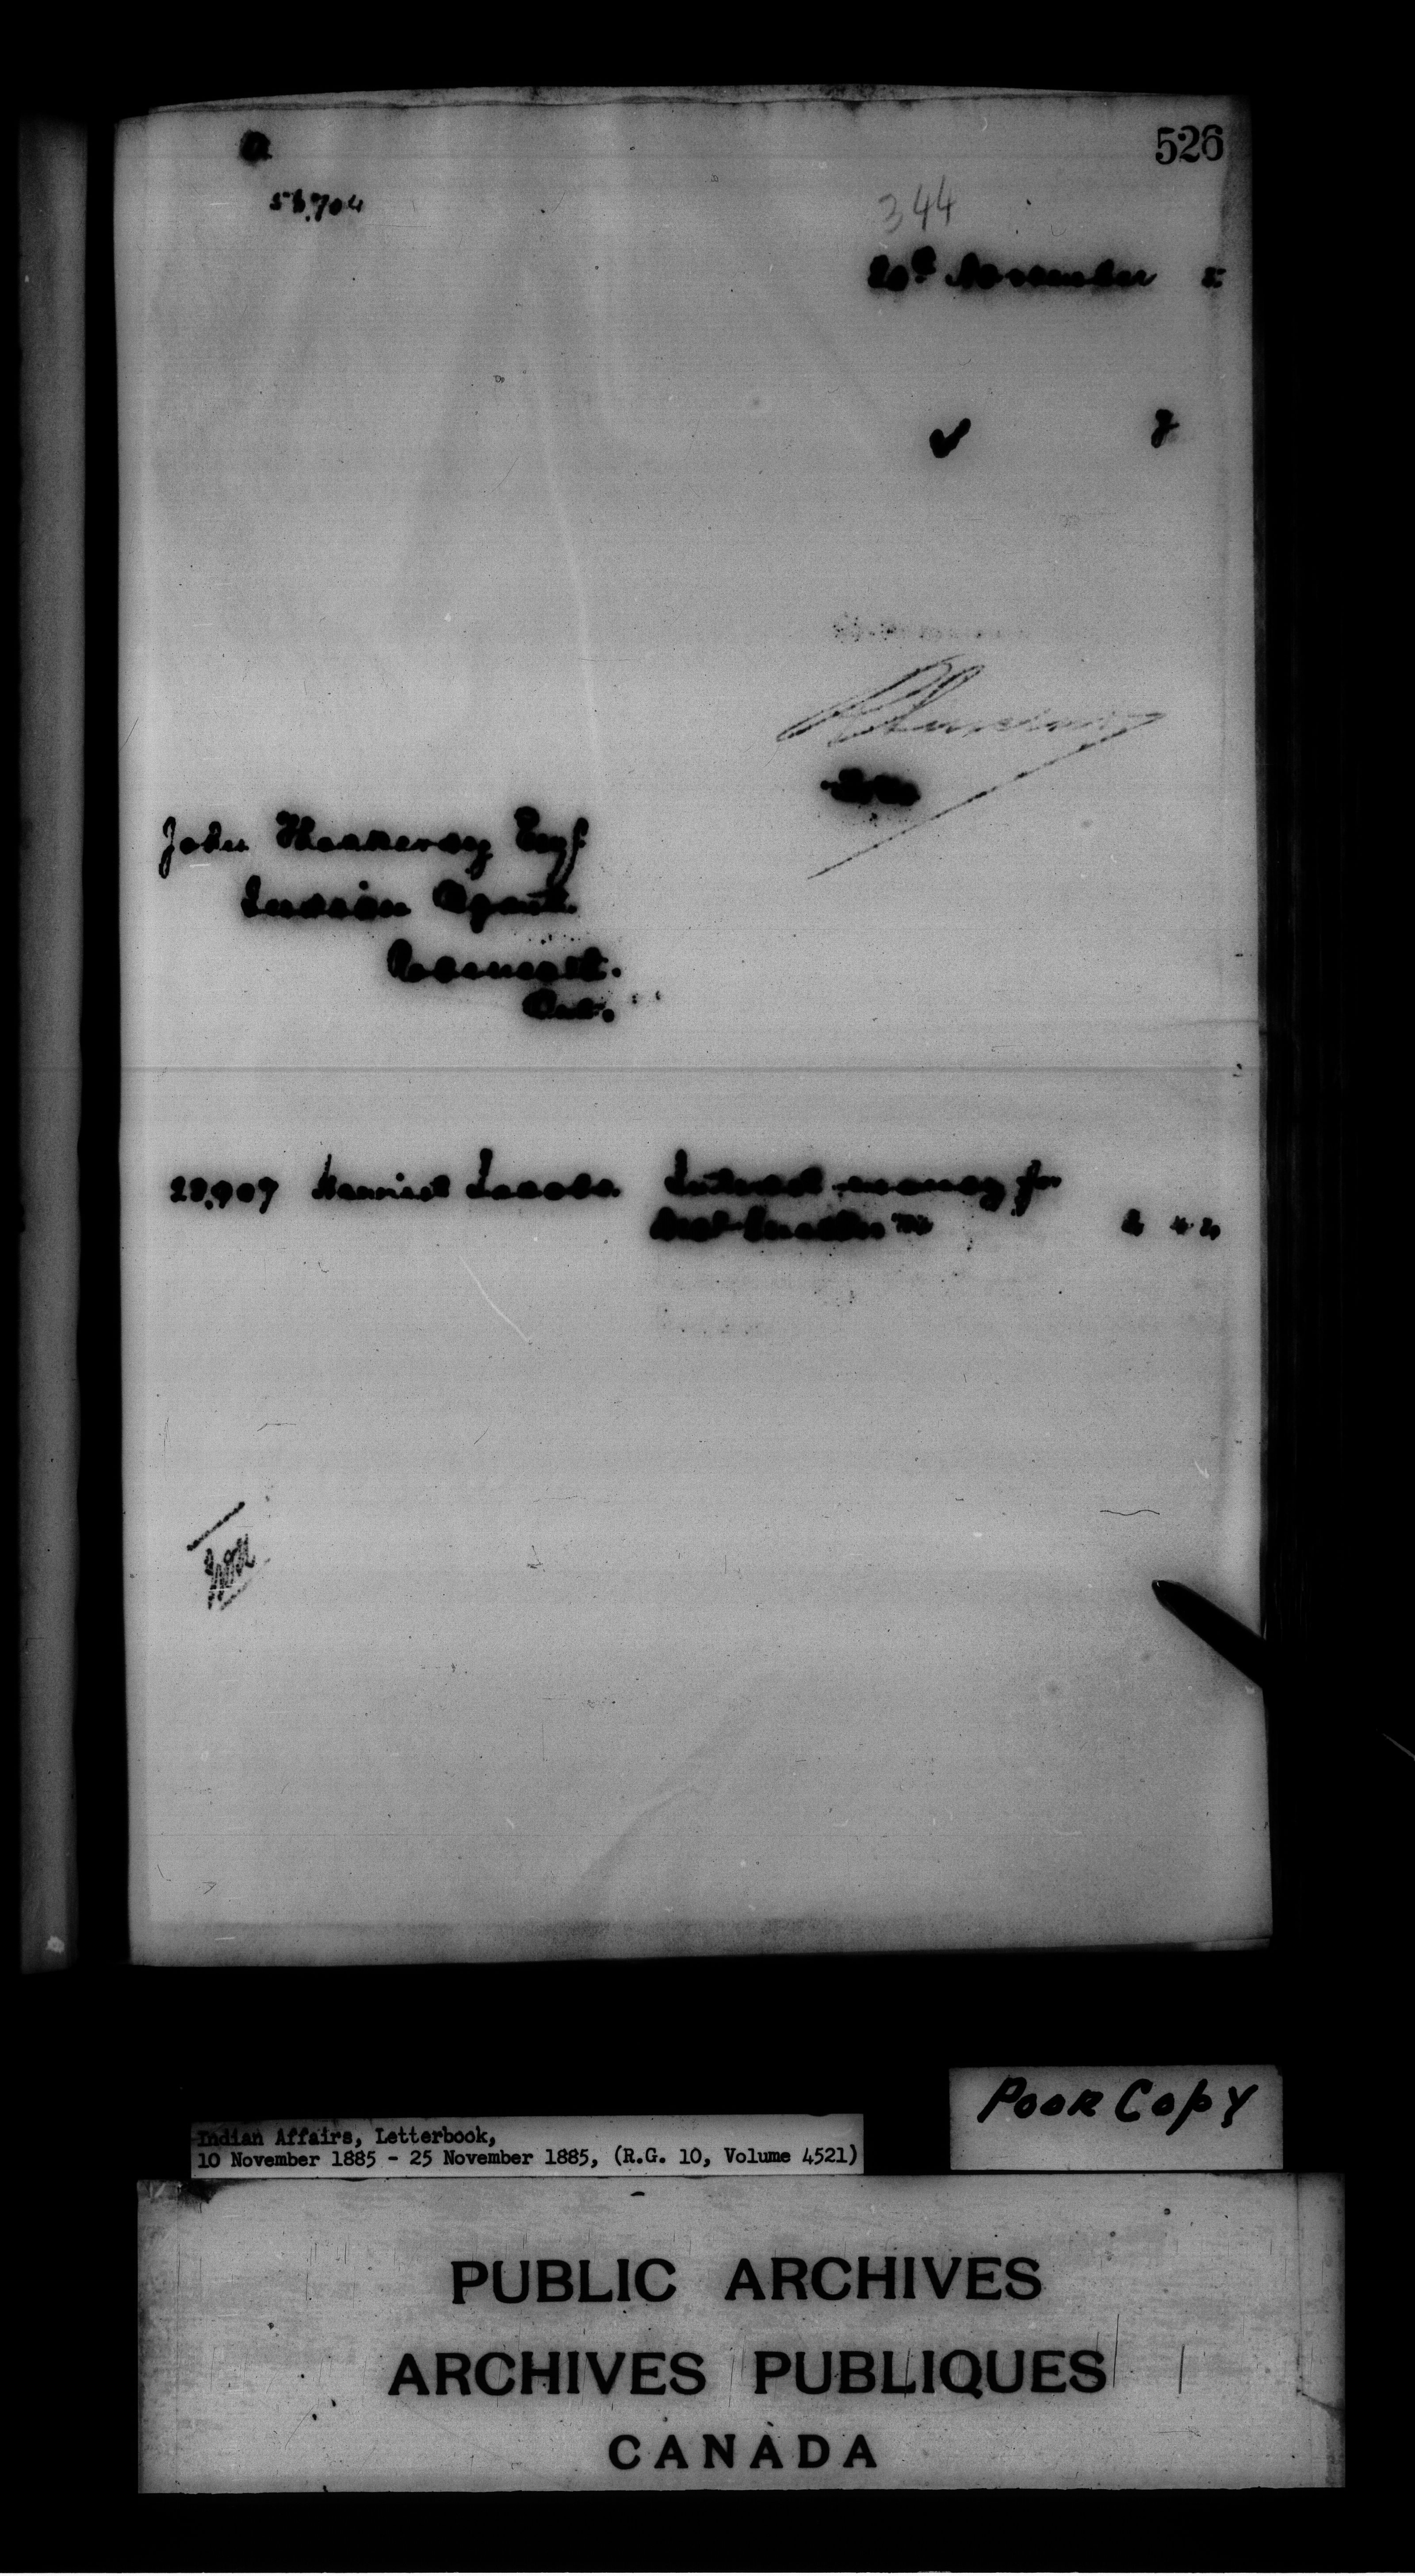 526
344
20th November 5
John Thackeray Esq
Indian Agent.
Roseneath.
Ont.
Harriet Jacobs Interest money for
2 42
Poor Copy
Indian Affairs, Letterbook,
10 November 1885 - 25 November 1885, (R.G. 10, Volume 4521)
PUBLIC ARCHIVES
ARCHIVES PUBLIQUES
CANADA